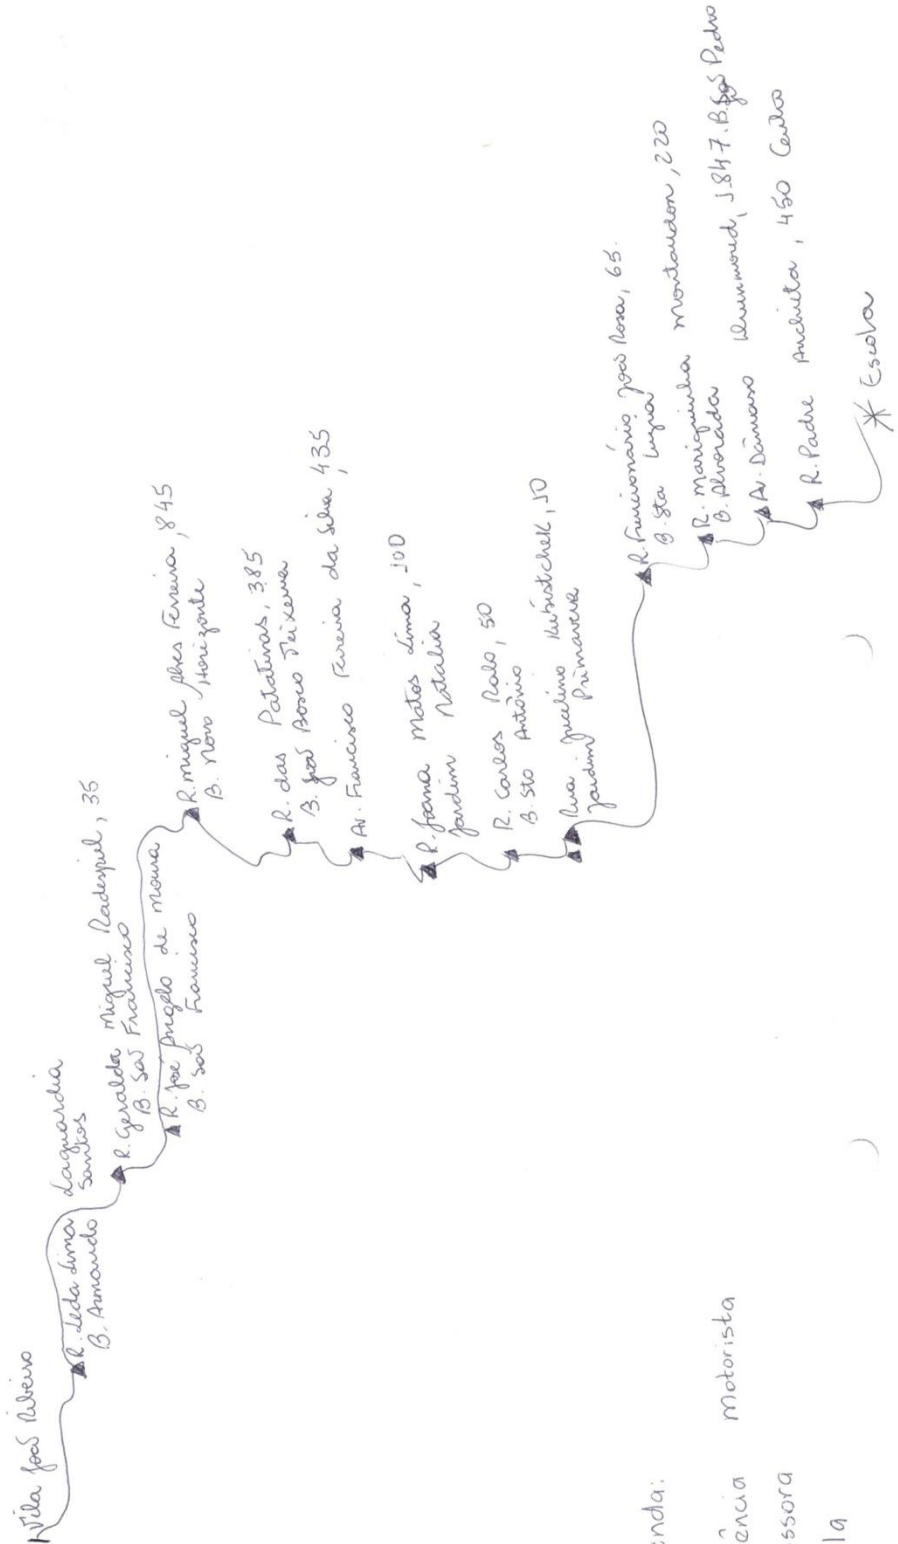 Vila João Ribeiro
R. Leda Lima Laguardia
B. Armando Santos
R. Geralda Miguel Radespiel, 35
B. São Francisco
R. José Ângelo de Moura
B. São Francisco
R. Miguel Alves Ferreira, 845
B. Novo Horizonte
R. das Patativas, 385
B. João Bosco Teixeira
Av. Francisco Ferreira da Silva, 435
R. Joana Matos Lima, 100
Jardim Natália
R. Carlos Ralo, 50
B. Sto Antônio
Rua Jucelino Kubistchek, 10
Jardim Primavera
R. Funcionário João Rosa, 65.
B. Sta Luzia
R. Mariquinha Montandon, 220
B. Alvorada
Av. Dâmaso Drummond, 1.847. B. São Pedro
R. Padre Anchieta, 450 Centro
* Escola
enda:
ência motorista
ssora
la